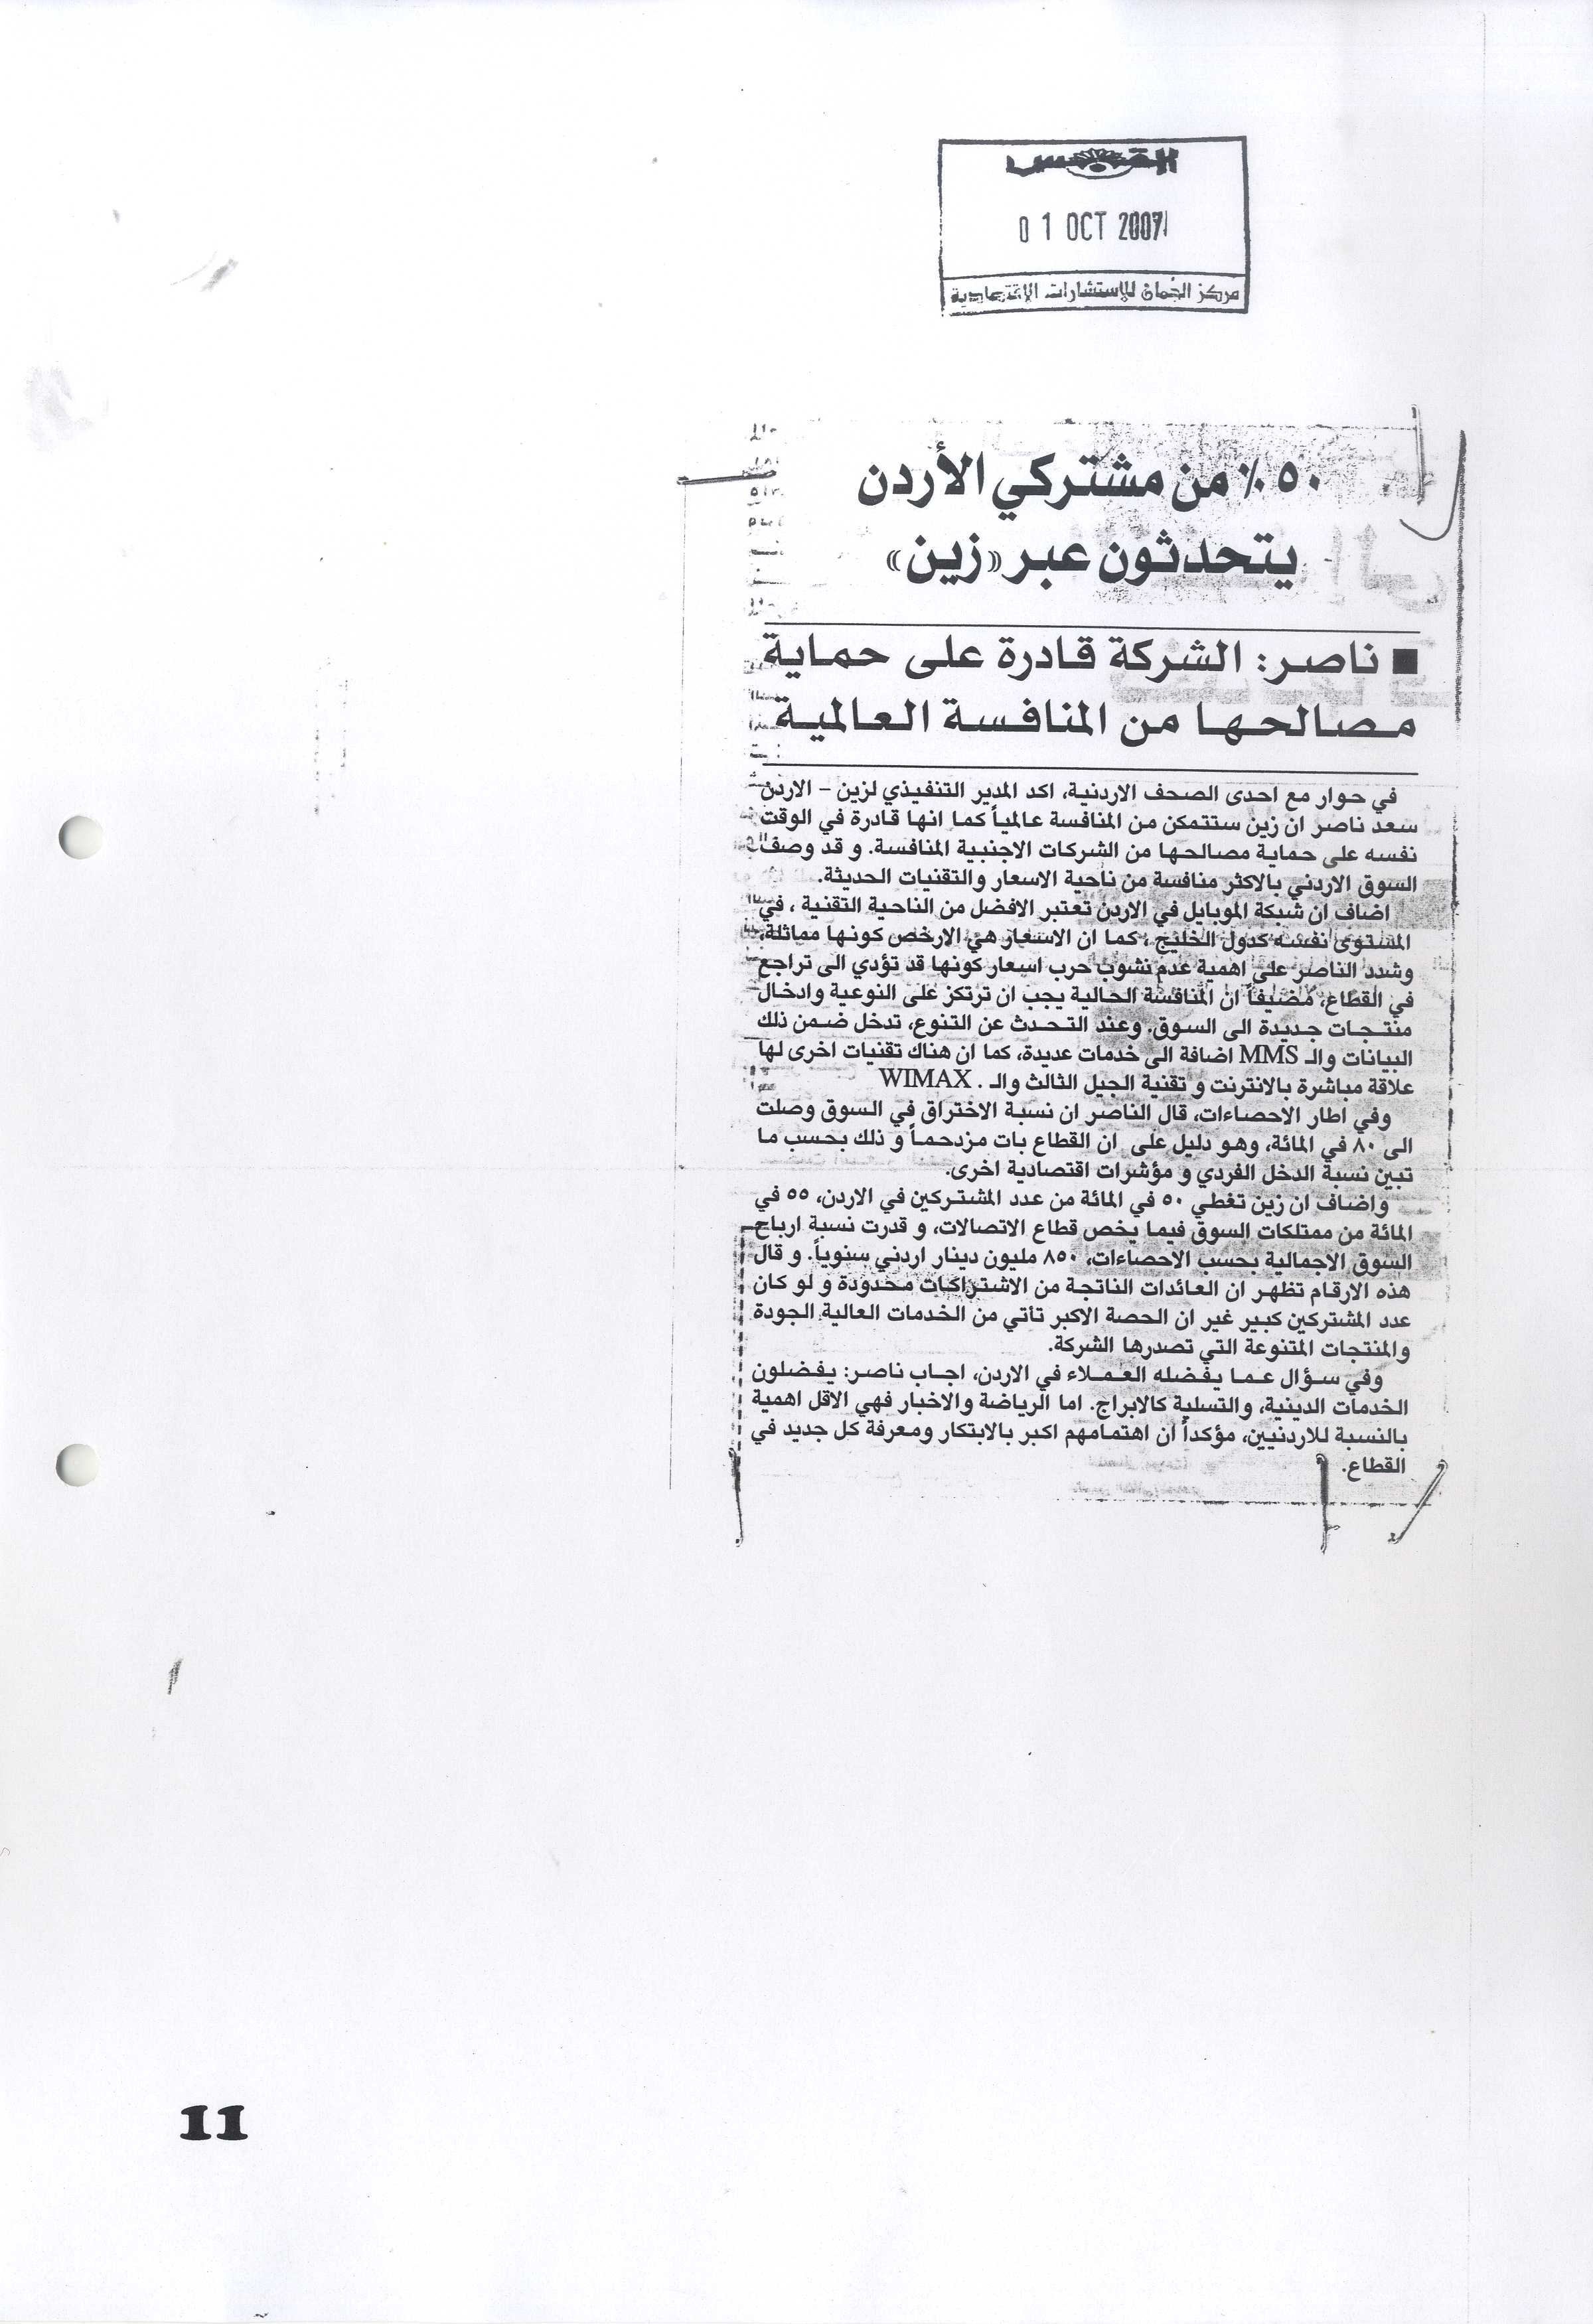 القبس
01 OCT 2007
مركز الجُمان للإستشارات الاقتصادية
٥٠٪ من مشتركي الأردن
يتحدثون عبر «زين»
■ ناصر: الشركة قادرة على حماية
مصالحها من المنافسة العالمية
في حوار مع احدى الصحف الاردنية، اكد المدير التنفيذي لزين – الاردن
سعد ناصر ان زين ستتمكن من المنافسة عالمياً كما انها قادرة في الوقت
نفسه على حماية مصالحها من الشركات الاجنبية المنافسة. و قد وصف
السوق الاردني بالاكثر منافسة من ناحية الاسعار والتقنيات الحديثة.
اضاف ان شبكة الموبايل في الاردن تعتبر الافضل من الناحية التقنية ، في
المستوى نفسه كدول الخليج ، كما ان الاسعار هي الارخص كونها مماثلة،
وشدد الناصر على اهمية عدم نشوب حرب اسعار كونها قد تؤدي الى تراجع
في القطاع، مضيفاً ان المنافسة الحالية يجب ان ترتكز على النوعية وادخال
منتجات جديدة الى السوق. وعند التحدث عن التنوع، تدخل ضمن ذلك
البيانات والـ MMS اضافة الى خدمات عديدة، كما ان هناك تقنيات اخرى لها
علاقة مباشرة بالانترنت و تقنية الجيل الثالث والـ . WIMAX
وفي اطار الاحصاءات، قال الناصر ان نسبة الاختراق في السوق وصلت
الى ٨٠ في المائة، وهو دليل على ان القطاع بات مزدحماً و ذلك بحسب ما
تبين نسبة الدخل الفردي و مؤشرات اقتصادية اخرى.
واضاف ان زين تغطي ٥٠ في المائة من عدد المشتركين في الاردن، ٥٥ في
المائة من ممتلكات السوق فيما يخص قطاع الاتصالات، و قدرت نسبة ارباح
السوق الاجمالية بحسب الاحصاءات، ٨٥٠ مليون دينار اردني سنوياً. و قال
هذه الارقام تظهر ان العائدات الناتجة من الاشتراكات محدودة و لو كان
عدد المشتركين كبير غير ان الحصة الاكبر تأتي من الخدمات العالية الجودة
والمنتجات المتنوعة التي تصدرها الشركة.
وفي سؤال عما يفضله العملاء في الاردن، اجاب ناصر: يفضلون
الخدمات الدينية، والتسلية كالابراج. اما الرياضة والاخبار فهي الاقل اهمية
بالنسبة للاردنيين، مؤكداً ان اهتمامهم اكبر بالابتكار ومعرفة كل جديد في
القطاع.
11